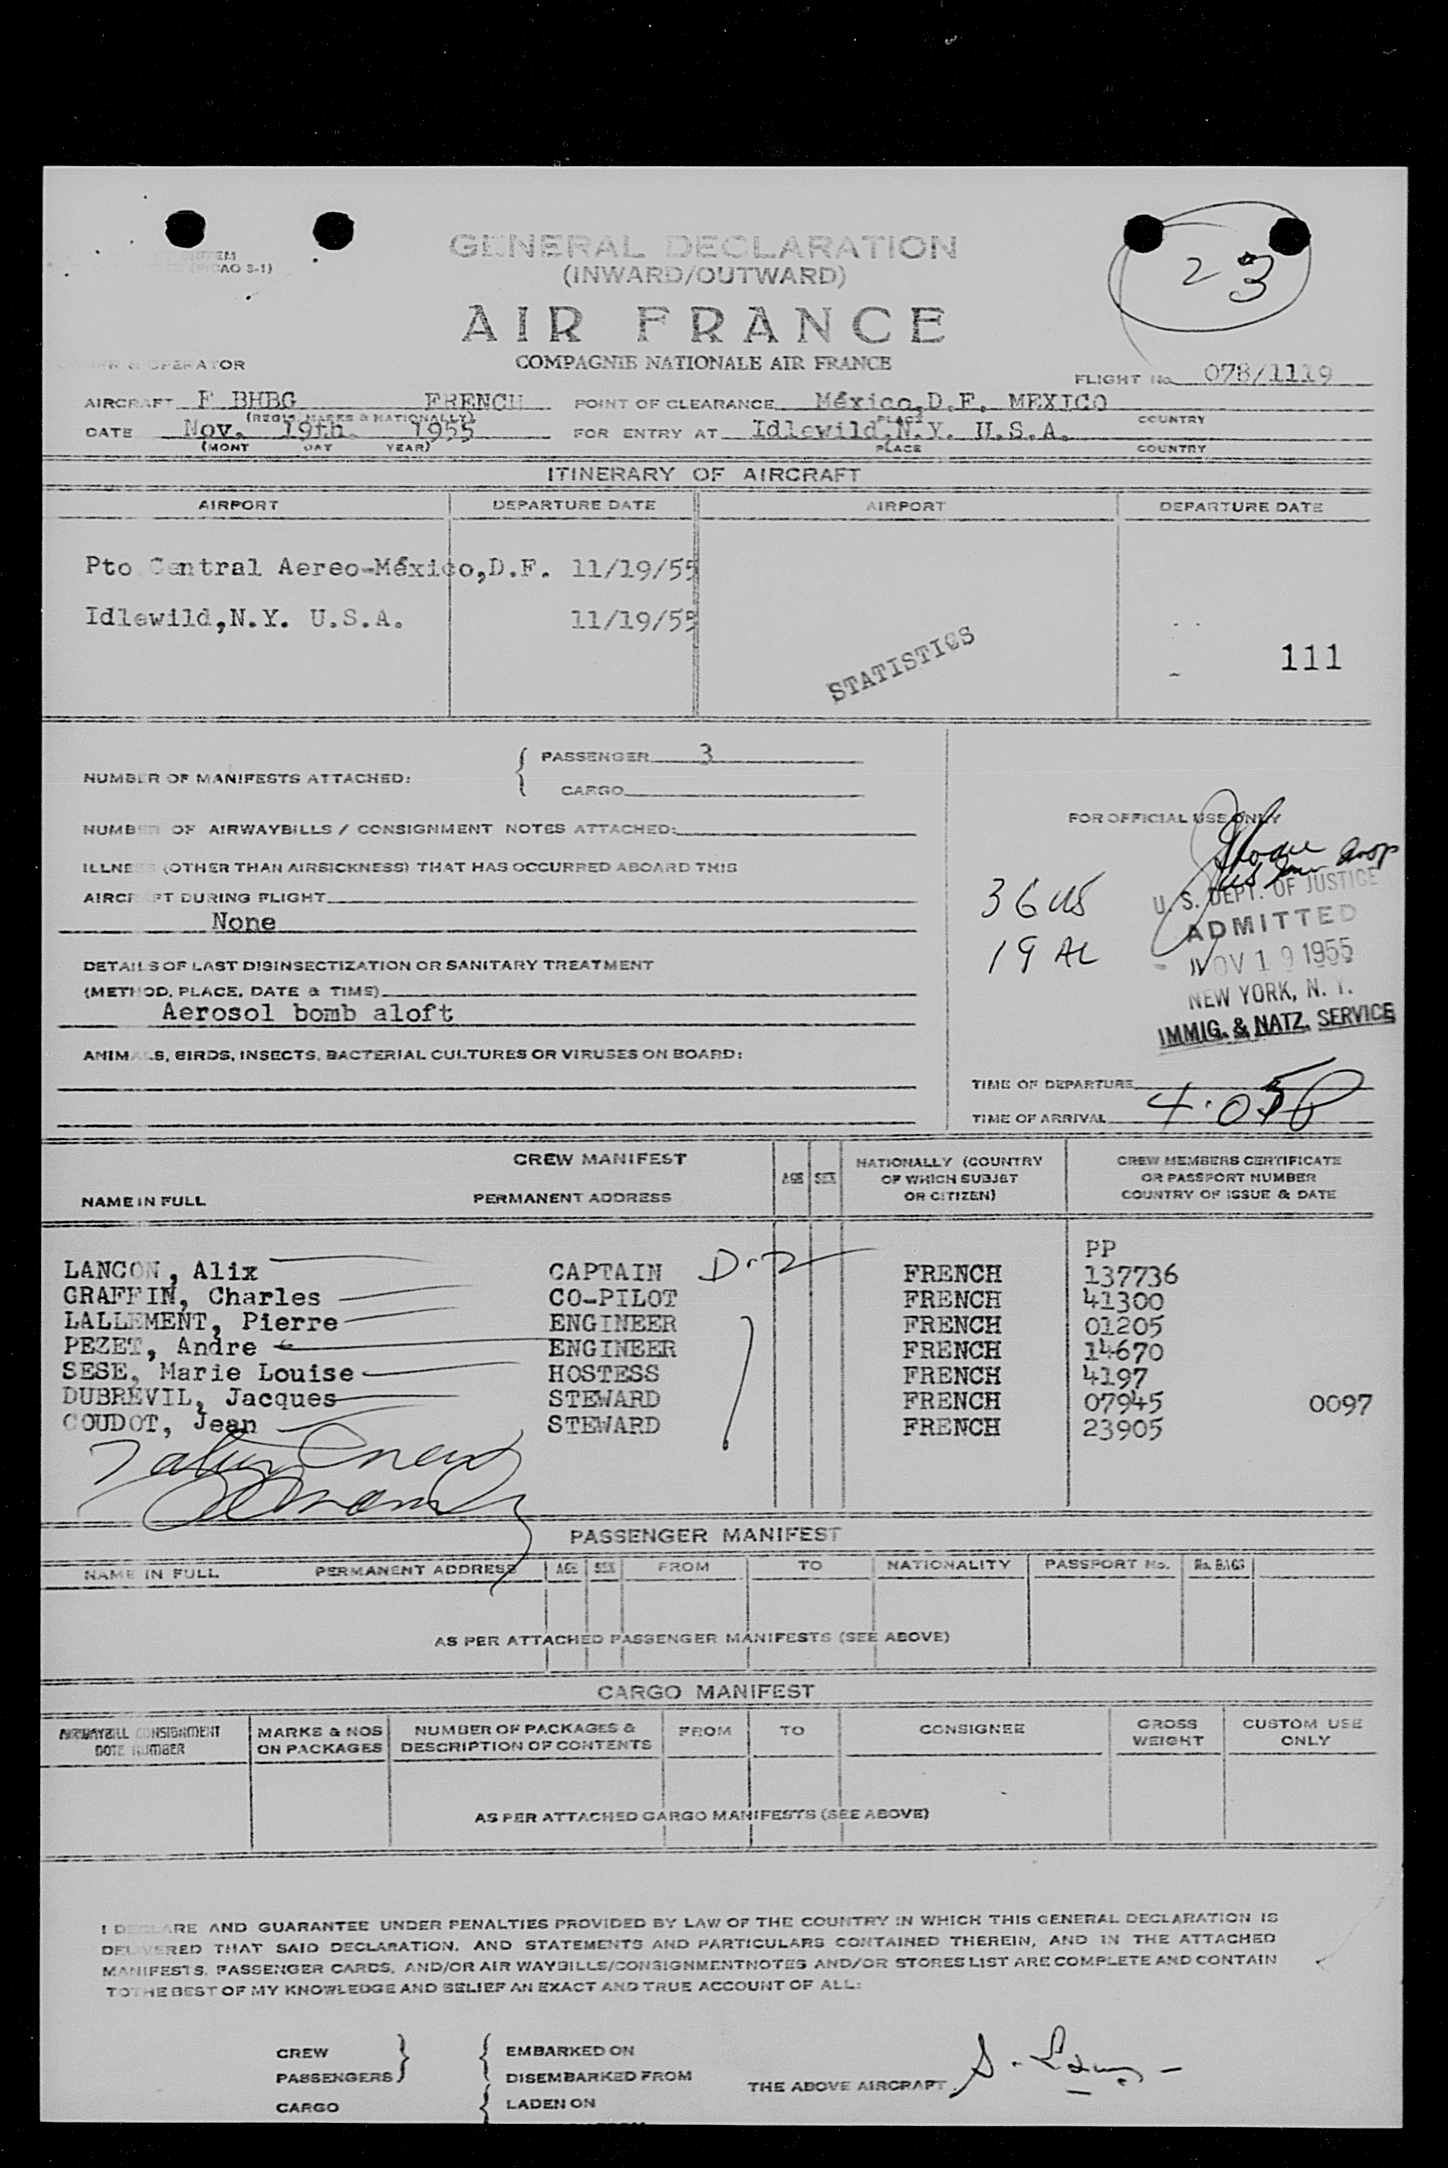 GENERAL DECLARATION
(INWARD/OUTWARD)
AIR FRANCE
COMPAGNIE NATIONALE AIR FRANCE
23
(ICAO S-1)
OPERATOR
FLIGHT No. 078/1119
AIRCRAFT F BHBG FRENCH POINT OF CLEARANCE México,D.F. MEXICO
(REGIS. MARKS & NATIONALLY) PLACE COUNTRY
DATE Nov. 19th. 1955 FOR ENTRY AT Idlewild,N.Y. U.S.A.
(MONT DAY YEAR) PLACE COUNTRY
ITINERARY OF AIRCRAFT
AIRPORT DEPARTURE DATE AIRPORT DEPARTURE DATE
Pto Central Aereo-México,D.F. 11/19/55
Idlewild,N.Y. U.S.A. 11/19/55
STATISTICS
111
NUMBER OF MANIFESTS ATTACHED: PASSENGER 3
CARGO
NUMBER OF AIRWAYBILLS / CONSIGNMENT NOTES ATTACHED:
ILLNESS (OTHER THAN AIRSICKNESS) THAT HAS OCCURRED ABOARD THIS
AIRCRAFT DURING FLIGHT
None
DETAILS OF LAST DISINSECTIZATION OR SANITARY TREATMENT
(METHOD, PLACE, DATE & TIME)
Aerosol bomb aloft
ANIMALS, BIRDS, INSECTS, BACTERIAL CULTURES OR VIRUSES ON BOARD:
FOR OFFICIAL USE ONLY
36 US
19 AL
U. S. DEPT. OF JUSTICE
ADMITTED
NOV 19 1955
NEW YORK, N. Y.
IMMIG. & NATZ. SERVICE
TIME OF DEPARTURE
TIME OF ARRIVAL 4:05P
CREW MANIFEST
NAME IN FULL PERMANENT ADDRESS AGE SEX NATIONALLY (COUNTRY OF WHICH SUBJET OR CITIZEN) CREW MEMBERS CERTIFICATE OR PASSPORT NUMBER COUNTRY OF ISSUE & DATE
PP
LANCON, Alix CAPTAIN D-2 FRENCH 137736
GRAFFIN, Charles CO-PILOT FRENCH 41300
LALLEMENT, Pierre ENGINEER FRENCH 01205
PEZET, Andre ENGINEER FRENCH 14670
SESE, Marie Louise HOSTESS FRENCH 4197
DUBREVIL, Jacques STEWARD FRENCH 07945 0097
COUDOT, Jean STEWARD FRENCH 23905
PASSENGER MANIFEST
NAME IN FULL PERMANENT ADDRESS AGE SEX FROM TO NATIONALITY PASSPORT No. No. BAGS
AS PER ATTACHED PASSENGER MANIFESTS (SEE ABOVE)
CARGO MANIFEST
AIRWAYBILL CONSIGNMENT NOTE NUMBER MARKS & NOS ON PACKAGES NUMBER OF PACKAGES & DESCRIPTION OF CONTENTS FROM TO CONSIGNEE GROSS WEIGHT CUSTOM USE ONLY
AS PER ATTACHED CARGO MANIFESTS (SEE ABOVE)
I DECLARE AND GUARANTEE UNDER PENALTIES PROVIDED BY LAW OF THE COUNTRY IN WHICH THIS GENERAL DECLARATION IS
DELIVERED THAT SAID DECLARATION, AND STATEMENTS AND PARTICULARS CONTAINED THEREIN, AND IN THE ATTACHED
MANIFESTS, PASSENGER CARDS, AND/OR AIR WAYBILLS/CONSIGNMENTNOTES AND/OR STORES LIST ARE COMPLETE AND CONTAIN
TO THE BEST OF MY KNOWLEDGE AND BELIEF AN EXACT AND TRUE ACCOUNT OF ALL:
CREW EMBARKED ON
PASSENGERS DISEMBARKED FROM THE ABOVE AIRCRAFT
CARGO LADEN ON